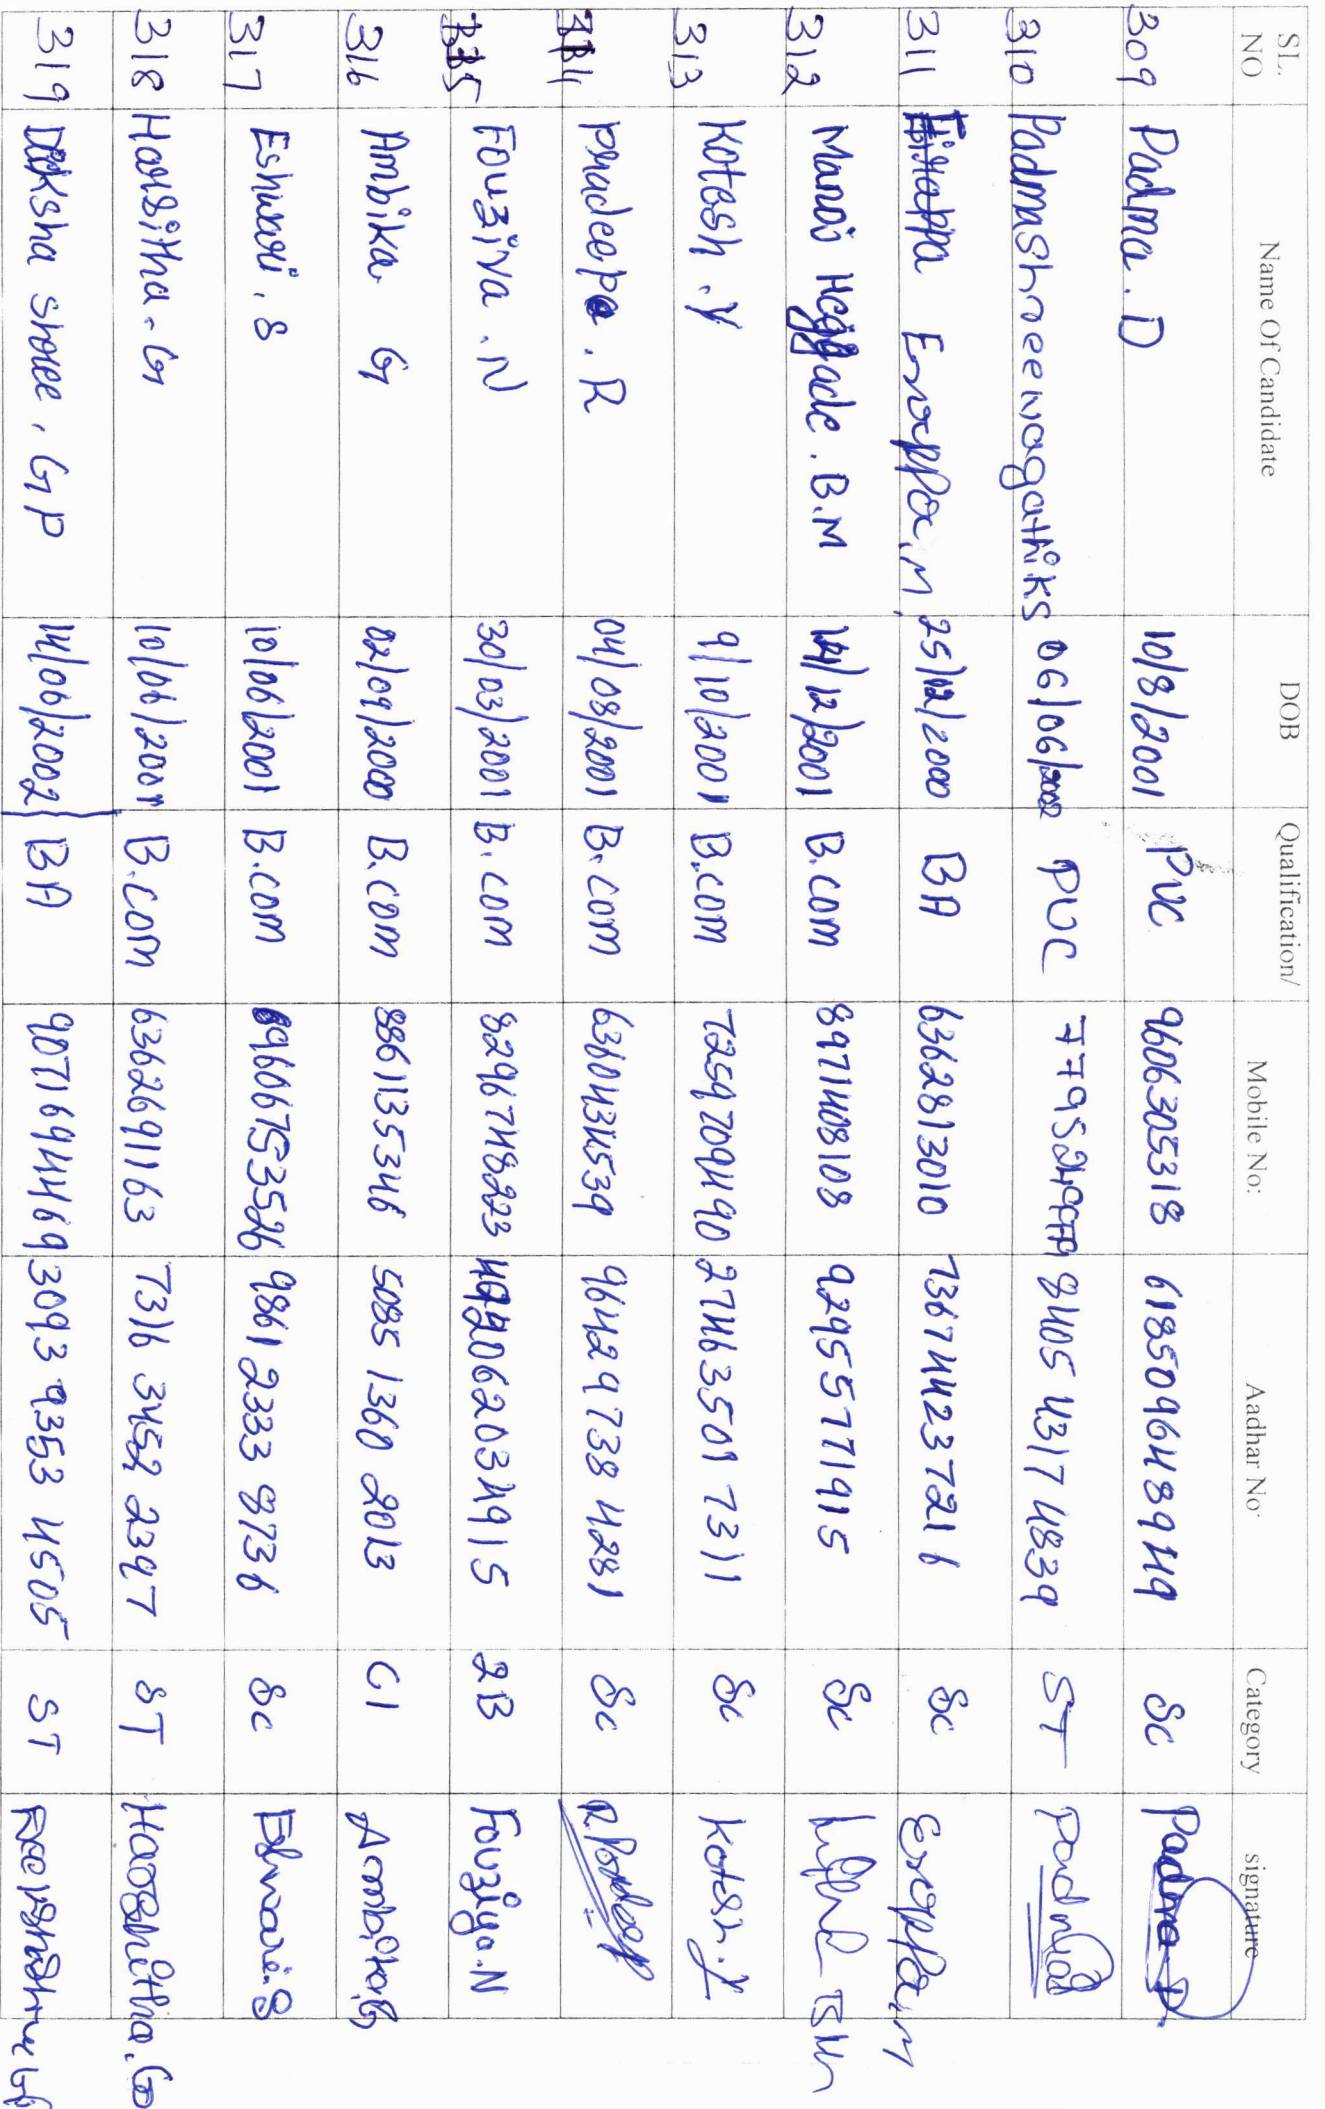 SL. NO Name Of Candidate DOB Qualification/ Mobile No: Aadhar No. Category signature
309 Padma . D 10/8/2001 PUC 9606305318 618509648949 Sc Padma D.
310 Padmashreenagathiks 06/06/2002 PUC 8405 4317 4839 ST
311 Erappa.M 25/12/2000 BA 6362813010 736744237216 Sc Erappa.M
312 Manoj Heggade . B.M 12/2001 B.com 8971408108 929557771915 Sc
313 Kotesh . Y 9/10/2001 B.com 7259709490 27463501 7311 Sc Kotesh.Y
Pradeepa . R 04/08/2001 B.com 6360434539 96429738 4281 Sc R.Pradeep
Fouziya . N 30/03/2001 B.com 8296748223 2B Fouziya.N
316 Ambika G 02/09/2000 B.com 8861135346 5085 1360 2013 C1 Ambika.G
317 Eshwari . S 10/06/2001 B.com 9861 2333 8736 Sc Eshwari.S
318 Harsitha . G 10/06/2001 B.com 6362691163 7316 3452 2397 ST Harshitha.G
319 Daksha shree . G P 14/06/2002 BA 9071694469 3093 9353 4505 ST